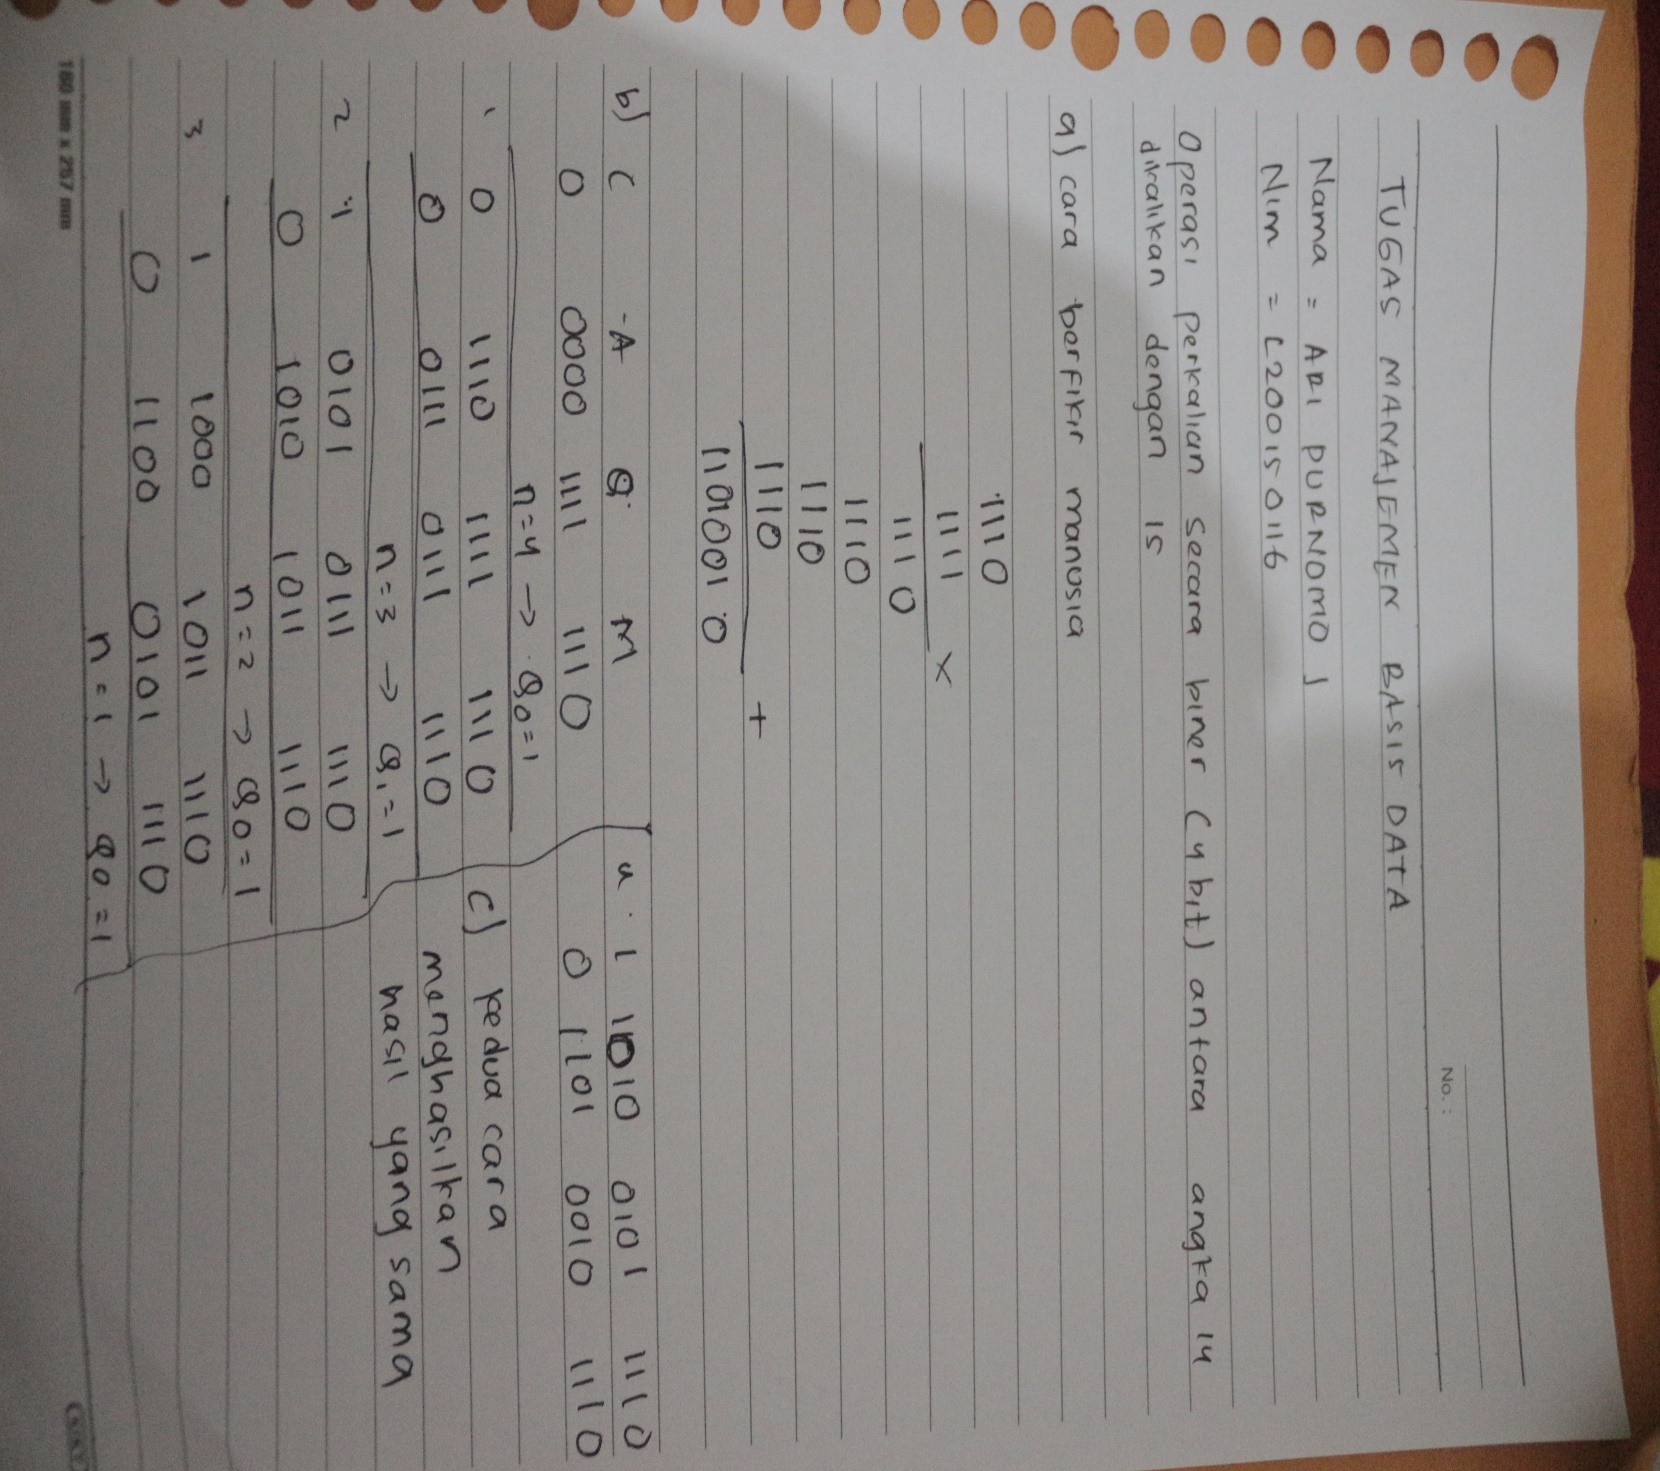 No. :
TUGAS MANAJEMEN BASIS DATA
Nama = ARI PURNOMO J
Nim = L200150116
Operasi perkalian secara biner (4 bit) antara angka 14
dikalikan dengan 15
a) cara berfikir manusia
1110
1111 x
1110
1110
1110
1110 +
11010010
b) C A Q M
0 0000 1111 1110
n=4 → Q0=1
1 0 1110 1111 1110
0 0111 0111 1110
n=3 → Q1=1
2 1 0101 0111 1110
0 1010 1011 1110
n=2 → Q0=1
3 1 1000 1011 1110
0 1100 0101 1110
n=1 → Q0=1
4. 1 1010 0101 1110
0 1101 0010 1110
c) kedua cara
menghasilkan
hasil yang sama
180 mm x 257 mm